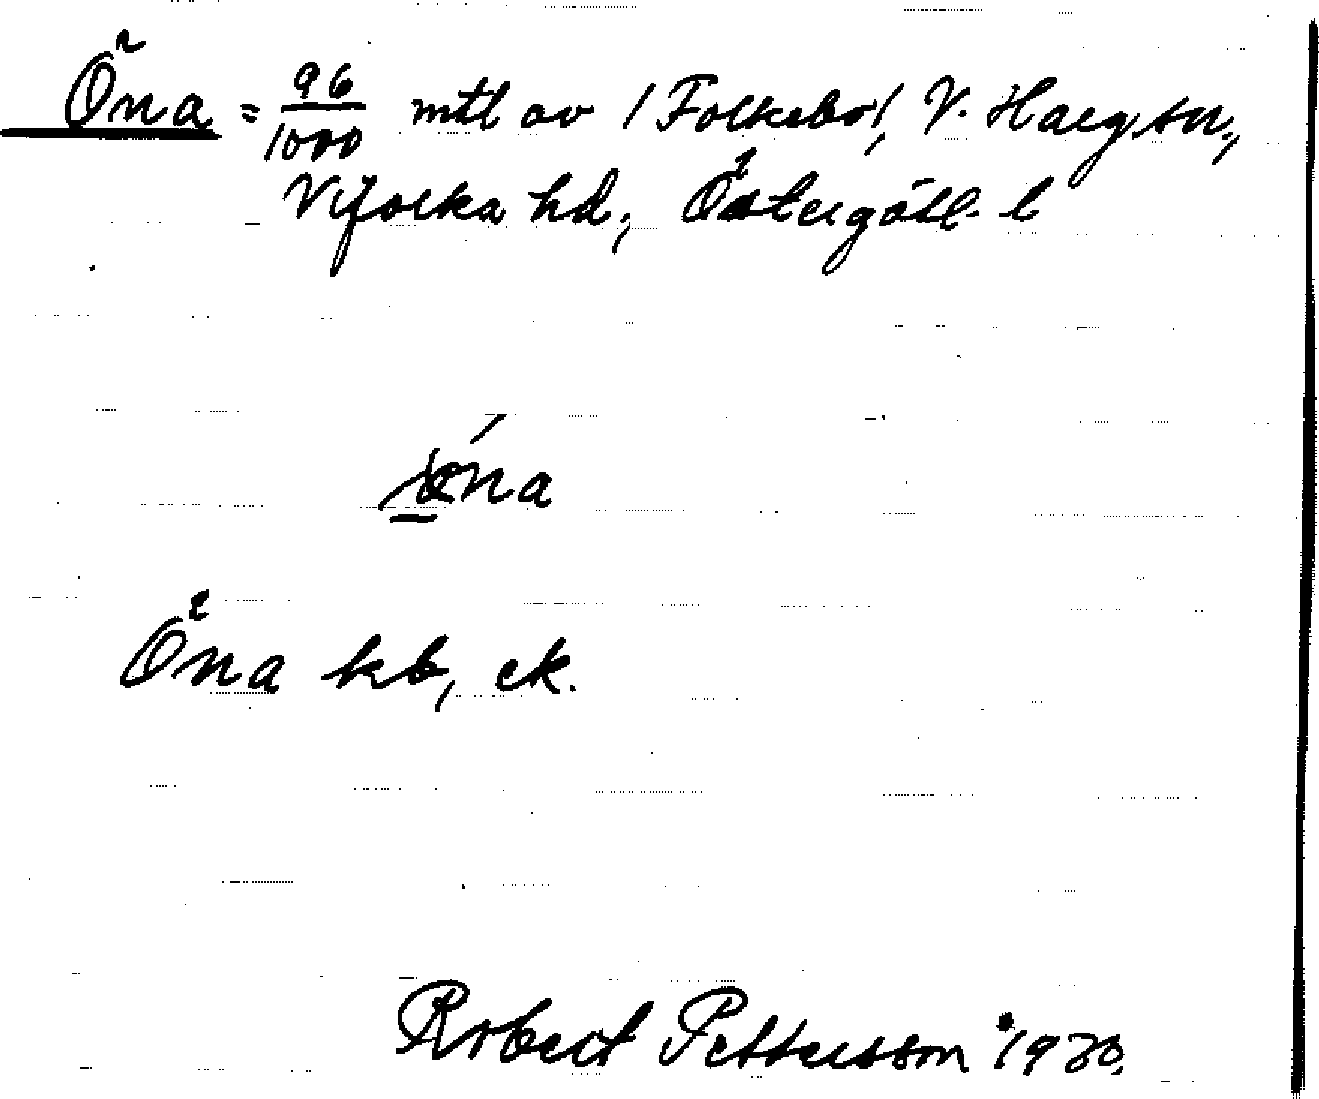 Öna = 96/1000 mtl av /Folkebo/, V. Harg sn,
Vifolka hd, Östergötl. l
Öna kb, ek.
Robert Pettersson 1930.